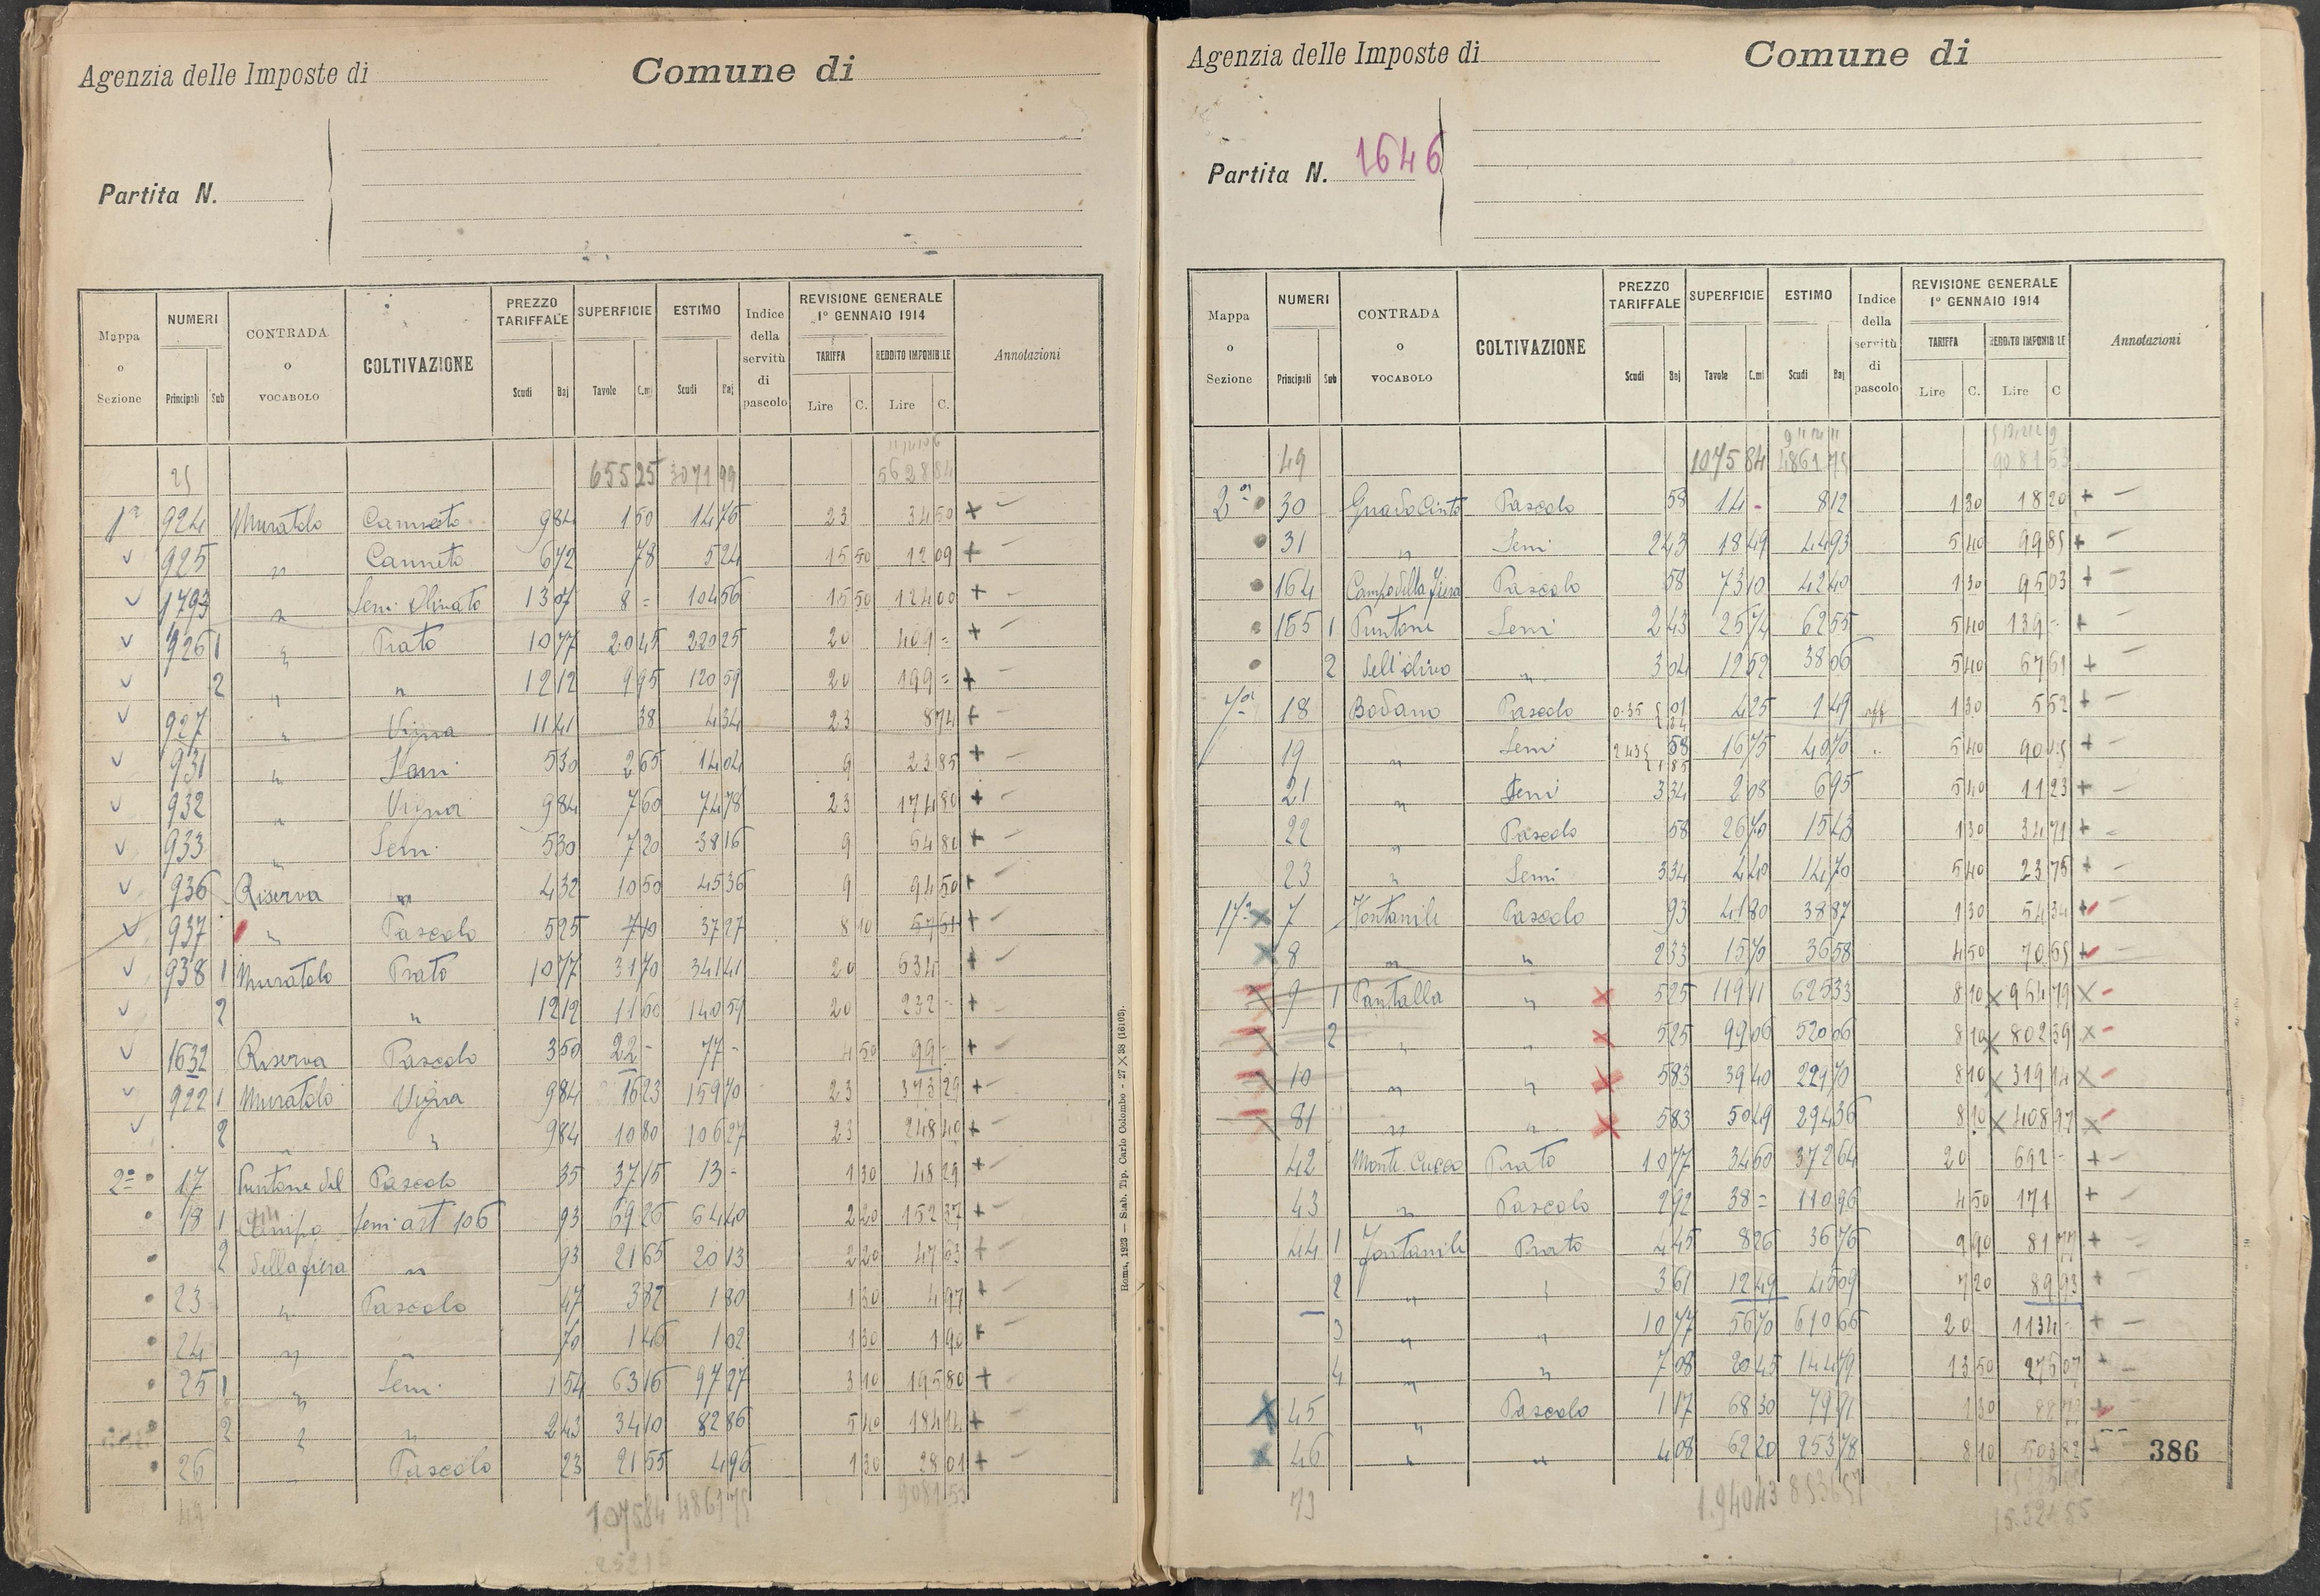 Agenzia delle Imposte di Comune di
Partita N.
Mappa o Sezione NUMERI Principali Sub CONTRADA o VOCABOLO COLTIVAZIONE PREZZO TARIFFALE Scudi Baj SUPERFICIE Tavole C.mi ESTIMO Scudi Baj Indice della servitù di pascolo REVISIONE GENERALE 1º GENNAIO 1914 TARIFFA Lire C. REDDITO IMPONIBILE Lire C. Annotazioni
25 655 25 3071 99 5628 84
1ª 924 Muratolo Canneto 9 84 1 50 14 76 23 34 50 +
v 925 " Canneto 6 72 78 5 24 15 50 12 09 +
v 1793 " Semi Olivato 13 07 8 = 104 56 15 50 124 00 +
v 926 1 " Prato 10 77 20 45 220 25 20 409 = +
v 2 " " 12 12 9 95 120 59 20 199 = +
v 927 " Vigna 11 41 38 4 34 23 8 74 +
v 931 " Semi 5 30 2 65 14 04 9 23 85 +
v 932 " Vigna 9 84 7 60 74 78 23 174 80 +
v 933 " Semi 5 30 7 20 38 16 9 64 80 +
v 936 Riserva " 4 32 10 50 45 36 9 94 50 +
v 937 " Pascolo 5 25 7 10 37 27 8 10 57 51 +
v 938 1 Muratolo Prato 10 77 31 70 341 41 20 634 - +
v 2 " 12 12 11 60 140 59 20 232 - +
v 1632 Riserva Pascolo 3 50 22 - 77 - 4 50 99 - +
v 922 1 Muratolo Vigna 9 84 16 23 159 70 23 373 29 +
v 2 " " 9 84 10 80 106 27 23 248 40 +
2ª 17 Puntone del Pascolo 35 37 15 13 - 1 30 48 29 +
18 1 Campo Semi art 106 93 69 26 64 40 2 20 152 37 +
2 della fiera " 93 21 65 20 13 2 20 47 63 +
23 " Pascolo 47 3 82 1 80 1 30 4 97 +
24 " " 70 1 46 1 02 1 30 1 90 +
25 1 " Semi 1 54 63 16 97 27 3 10 195 80 +
2 " " 2 43 34 10 82 86 5 40 184 14 +
26 Pascolo 23 21 55 4 96 1 30 28 01 +
49 1075 84 4861 75 9081 53
Roma, 1923 — Stab. Tip. Carlo Colombo - 27 × 38 (16103).
Agenzia delle Imposte di Comune di
Partita N. 1646
Mappa o Sezione NUMERI Principali Sub CONTRADA o VOCABOLO COLTIVAZIONE PREZZO TARIFFALE Scudi Baj SUPERFICIE Tavole C.mi ESTIMO Scudi Baj Indice della servitù di pascolo REVISIONE GENERALE 1º GENNAIO 1914 TARIFFA Lire C. REDDITO IMPONIBILE Lire C Annotazioni
49 1075 84 4861 75 9081 53
2ª 30 Guado Cinto Pascolo 58 14 - 8 12 1 30 18 20 +
31 " Semi 2 43 18 49 44 93 5 40 99 85 +
164 Campo della Fiera Pascolo 58 73 10 42 40 1 30 95 03 +
165 1 Puntone Semi 2 43 25 74 62 55 5 40 139 - +
2 dell'olivo " 3 04 12 52 38 06 5 40 67 61 +
18 Bodano Pascolo 0.35 01 4 25 1 49 aff 1 30 5 52 +
19 " Semi 2 43 58 16 75 40 70 " 5 40 90 45 +
21 " Semi 3 34 2 08 6 95 5 40 11 23 +
22 " Pascolo 58 26 70 15 43 1 30 34 71 +
23 " Semi 3 34 4 40 14 70 5 40 23 76 +
17ª 7 Fontanile Pascolo 93 41 80 38 87 1 30 54 34 +
8 " " 2 33 15 70 36 58 4 50 70 65 +
9 1 Pantalla " x 5 25 119 11 625 33 8 10 x 964 79 x
2 " " x 5 25 99 06 520 06 8 10 x 802 39 x
10 " " x 5 83 39 40 229 70 8 10 x 319 14 x
81 " " x 5 83 50 49 294 36 8 10 x 408 97 x
42 Monte Cucco Prato 10 77 34 60 372 64 20 692 - +
43 " Pascolo 2 92 38 = 110 96 4 50 171 +
44 1 Fontanile Prato 4 45 8 26 36 76 9 90 81 77 +
2 " " 3 61 12 49 45 09 7 20 89 93 +
3 " " 10 77 56 70 610 66 20 1134 - +
4 " " 7 08 20 45 144 79 13 50 275 07 +
45 " Pascolo 1 17 68 30 79 91 1 30 88 79 +
46 " " 4 08 62 20 253 78 8 10 503 82 +
386
73 1.940 43 8536 57
15.321 55